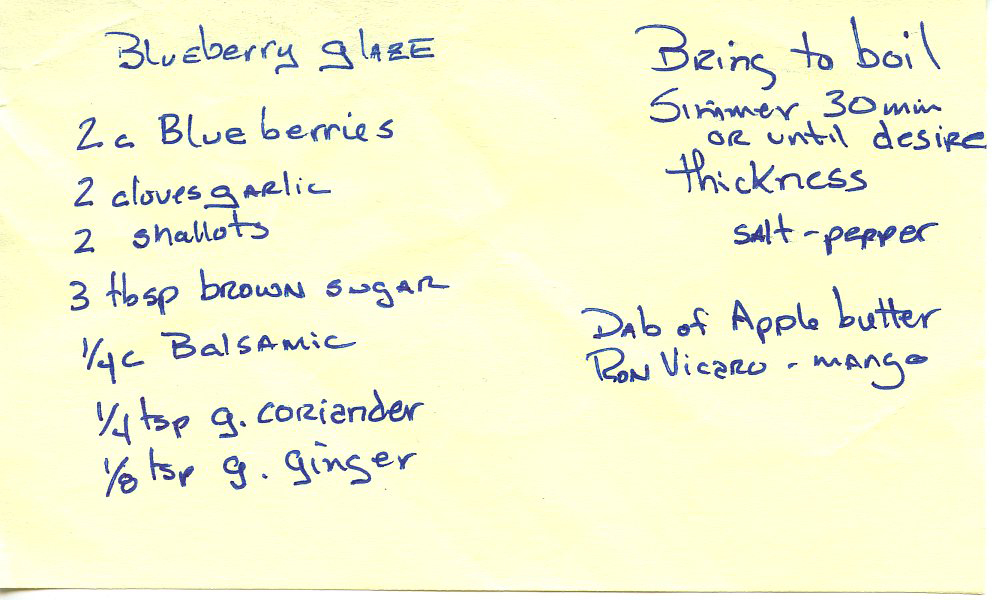 Blueberry glaze
2 c Blueberries
2 cloves garlic
2 shallots
3 tbsp brown sugar
1/4 c Balsamic
1/4 tsp g. coriander
1/8 tsp g. ginger
Bring to boil
Simmer 30 min
or until desire
thickness
salt - pepper
Dab of Apple butter
Ron Vicaro - mango